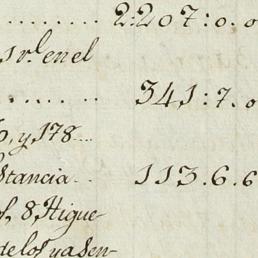 ........ 2:207:0.0
s r.l en el
...... 341:7.0
6, y 178...
stancia.. 113.6.6
of, 8, Higue-
de los ya sen-